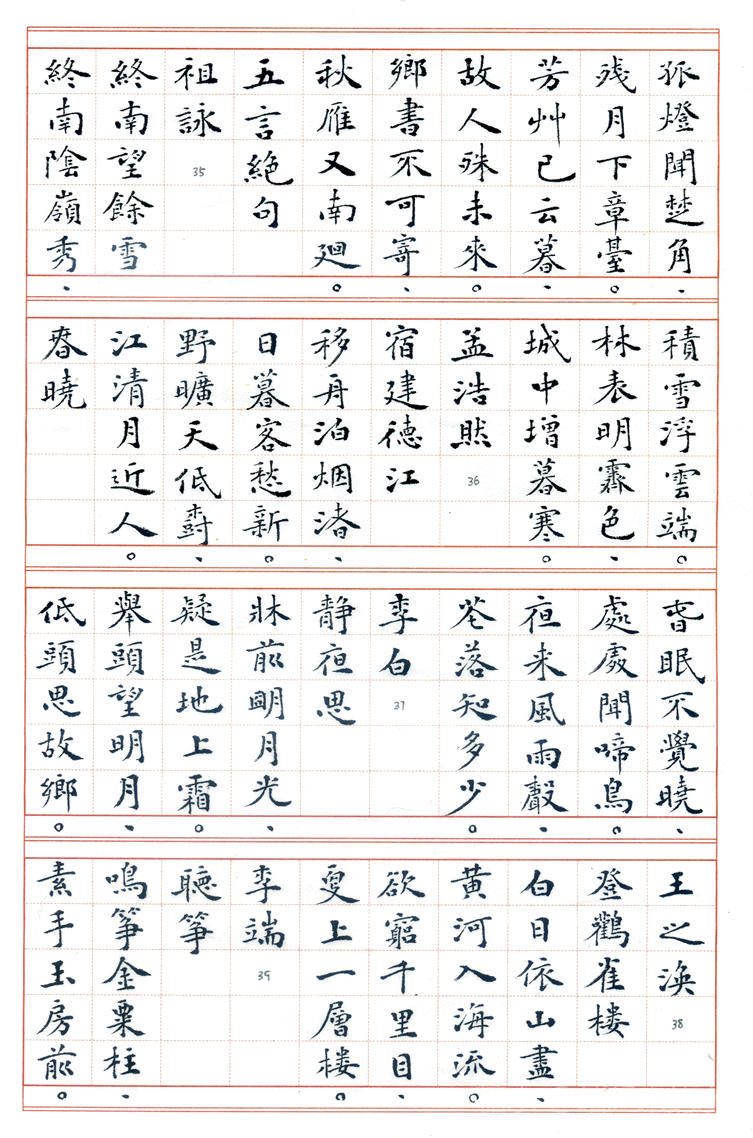 孤燈聞楚角、
残月下章臺。
芳艸已云暮、
故人殊未來。
鄉書不可寄、
秋雁又南廻。
五言絶句
祖詠 35
終南望餘雪
終南陰嶺秀、
積雪浮雲端。
林表明霽色、
城中增暮寒。
孟浩然 36
宿建德江
移舟泊烟渚、
日暮客愁新。
野曠天低樹、
江清月近人。
春曉
春眠不覺曉、
處處聞啼鳥。
夜来風雨聲、
花落知多少。
李白 37
静夜思
牀前明月光、
疑是地上霜。
舉頭望明月、
低頭思故鄉。
王之渙 38
登鸛雀楼
白日依山盡、
黄河入海流。
欲窮千里目、
更上一層楼。
李端 39
聽箏
鳴箏金粟柱、
素手玉房前。